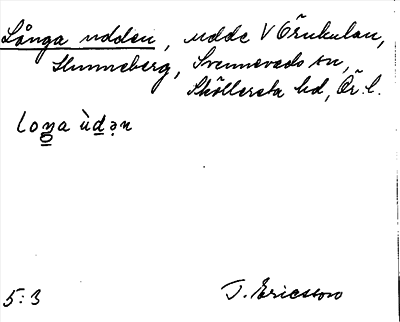 Långa udden, udde V Örnkulan,
Hunneberg, Svennevads sn,
Sköllersta hd, Ör. l.
loŋa ùdən
5:3 T. Ericsson